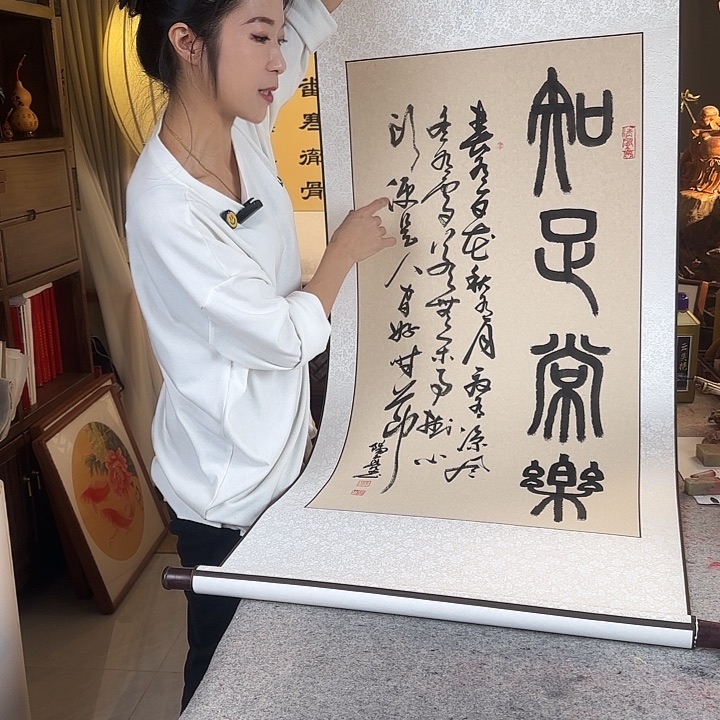 知足常樂
春有百花秋有月夏有涼風
冬有雪若無閑事掛心
頭便是人间好時節
寒徹骨